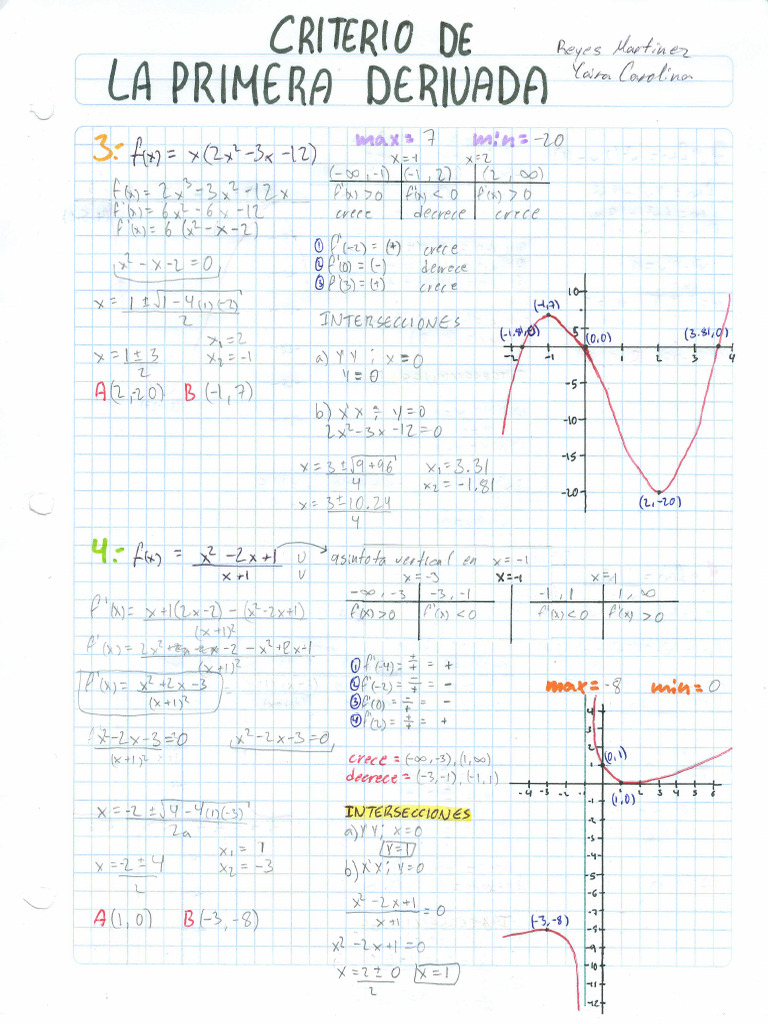 CRITERIO DE
LA PRIMERA DERIVADA
Reyes Martinez
Yaira Carolina
3:- f(x) = x(2x²-3x-12)
f(x) = 2x³-3x²-12x
f'(x) = 6x²-6x-12
f'(x) = 6(x²-x-2)
x²-x-2=0
x = 1±√1-4(1)(-2)
2
x = 1±3
2
x₁=2
x₂=-1
A(2,-20) B(-1,7)
max= 7 min= -20
x=-1 x=2
(-∞,-1) (-1,2) (2,∞)
f'(x)>0 f'(x)<0 f'(x)>0
crece decrece crece
① f'(-2) = (+) crece
② f'(0) = (-) decrece
③ f'(3) = (+) crece
INTERSECCIONES
a) Y'Y ; x=0
Y=0
b) X'X ; Y=0
2x²-3x-12=0
x = 3±√9+96
4
x₁=3.31
x₂=-1.81
x = 3±10.24
4
10
(-1,7)
5
(-1.81,0) (0,0) (3.81,0)
-2 -1 1 2 3 4
-5
-10
-15
-20
(2,-20)
4:- f(x) = x²-2x+1
x+1
asintota vertical en x=-1
U
V
f'(x) = x+1(2x-2)-(x²-2x+1)
(x+1)²
f'(x) = 2x² -2-x²+2x-1
(x+1)²
f'(x) = x²+2x-3
(x+1)²
x²-2x-3=0
(x+1)²
x²-2x-3=0
x = -2±√4-4(1)(-3)
2a
x = -2±4
2
x₁= 1
x₂= -3
A(1,0) B(-3,-8)
x=-3 x=-1 x=1
-∞,-3 -3,-1 -1,1 1,∞
f'(x)>0 f'(x)<0 f'(x)<0 f'(x)>0
① f'(-4) = +/+ = +
② f'(-2) = -/+ = -
③ f'(0) = -/+ = -
④ f'(2) = +/+ = +
crece = (-∞,-3),(1,∞)
decrece = (-3,-1),(-1,1)
INTERSECCIONES
a) Y'Y; x=0
Y=1
b) X'X; Y=0
x²-2x+1 =0
x+1
x²-2x+1=0
x = 2±0
2
x=1
max= -8 min= 0
4
3
2
1
(0,1)
-4 -3 -2 -1 1 2 3 4 5 6
(1,0)
-1
-2
-3
-4
-5
-6
-7
-8
-9
-10
-11
-12
(-3,-8)